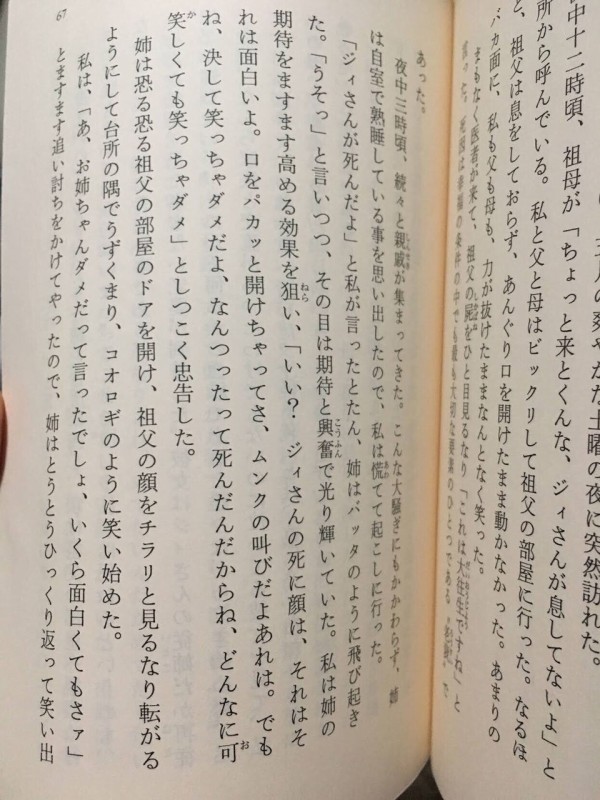 五月の爽やかな土曜の夜に突然訪れた。
中十二時頃、祖母が「ちょっと来とくんな、ジィさんが息してないよ」と
所から呼んでいる。私と父と母はビックリして祖父の部屋に行った。なるほ
と、祖父は息をしておらず、あんぐり口を開けたまま動かなかった。あまりの
バカ面に、私も父も母も、力が抜けたままなんとなく笑った。
まもなく医者が来て、祖父の屍をひと目見るなり「これは大往生ですね」と
言った。死因は
幸福の条件の中でも最も大切な要素のひとつである
で
あった。
夜中三時頃、続々と親戚が集まってきた。こんな大騒ぎにもかかわらず、姉
は自室で熟睡している事を思い出したので、私は慌てて起こしに行った。
「ジィさんが死んだよ」と私が言ったとたん、姉はバッタのように飛び起き
た。「うそっ」と言いつつ、その目は期待と興奮で光り輝いていた。私は姉の
期待をますます高める効果を狙い、「いい？　ジィさんの死に顔は、それはそ
れは面白いよ。口をパカッと開けちゃってさ、ムンクの叫びだよあれは。でも
ね、決して笑っちゃダメだよ、なんつったって死んだんだからね、どんなに可
笑しくても笑っちゃダメ」としつこく忠告した。
姉は恐る恐る祖父の部屋のドアを開け、祖父の顔をチラリと見るなり転がる
ようにして台所の隅でうずくまり、コオロギのように笑い始めた。
私は、「あ、お姉ちゃんダメだって言ったでしょ、いくら面白くてもさァ」
とますます追い討ちをかけてやったので、姉はとうとうひっくり返って笑い出
67